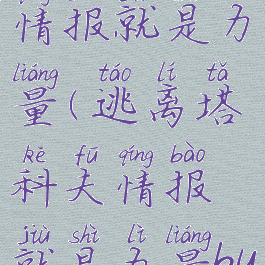 情报,就是力
liáng táo lí tǎ
量(逃离塔
kē fū qíng bào
科夫情报
jiù shì lì liáng
就是力量bu